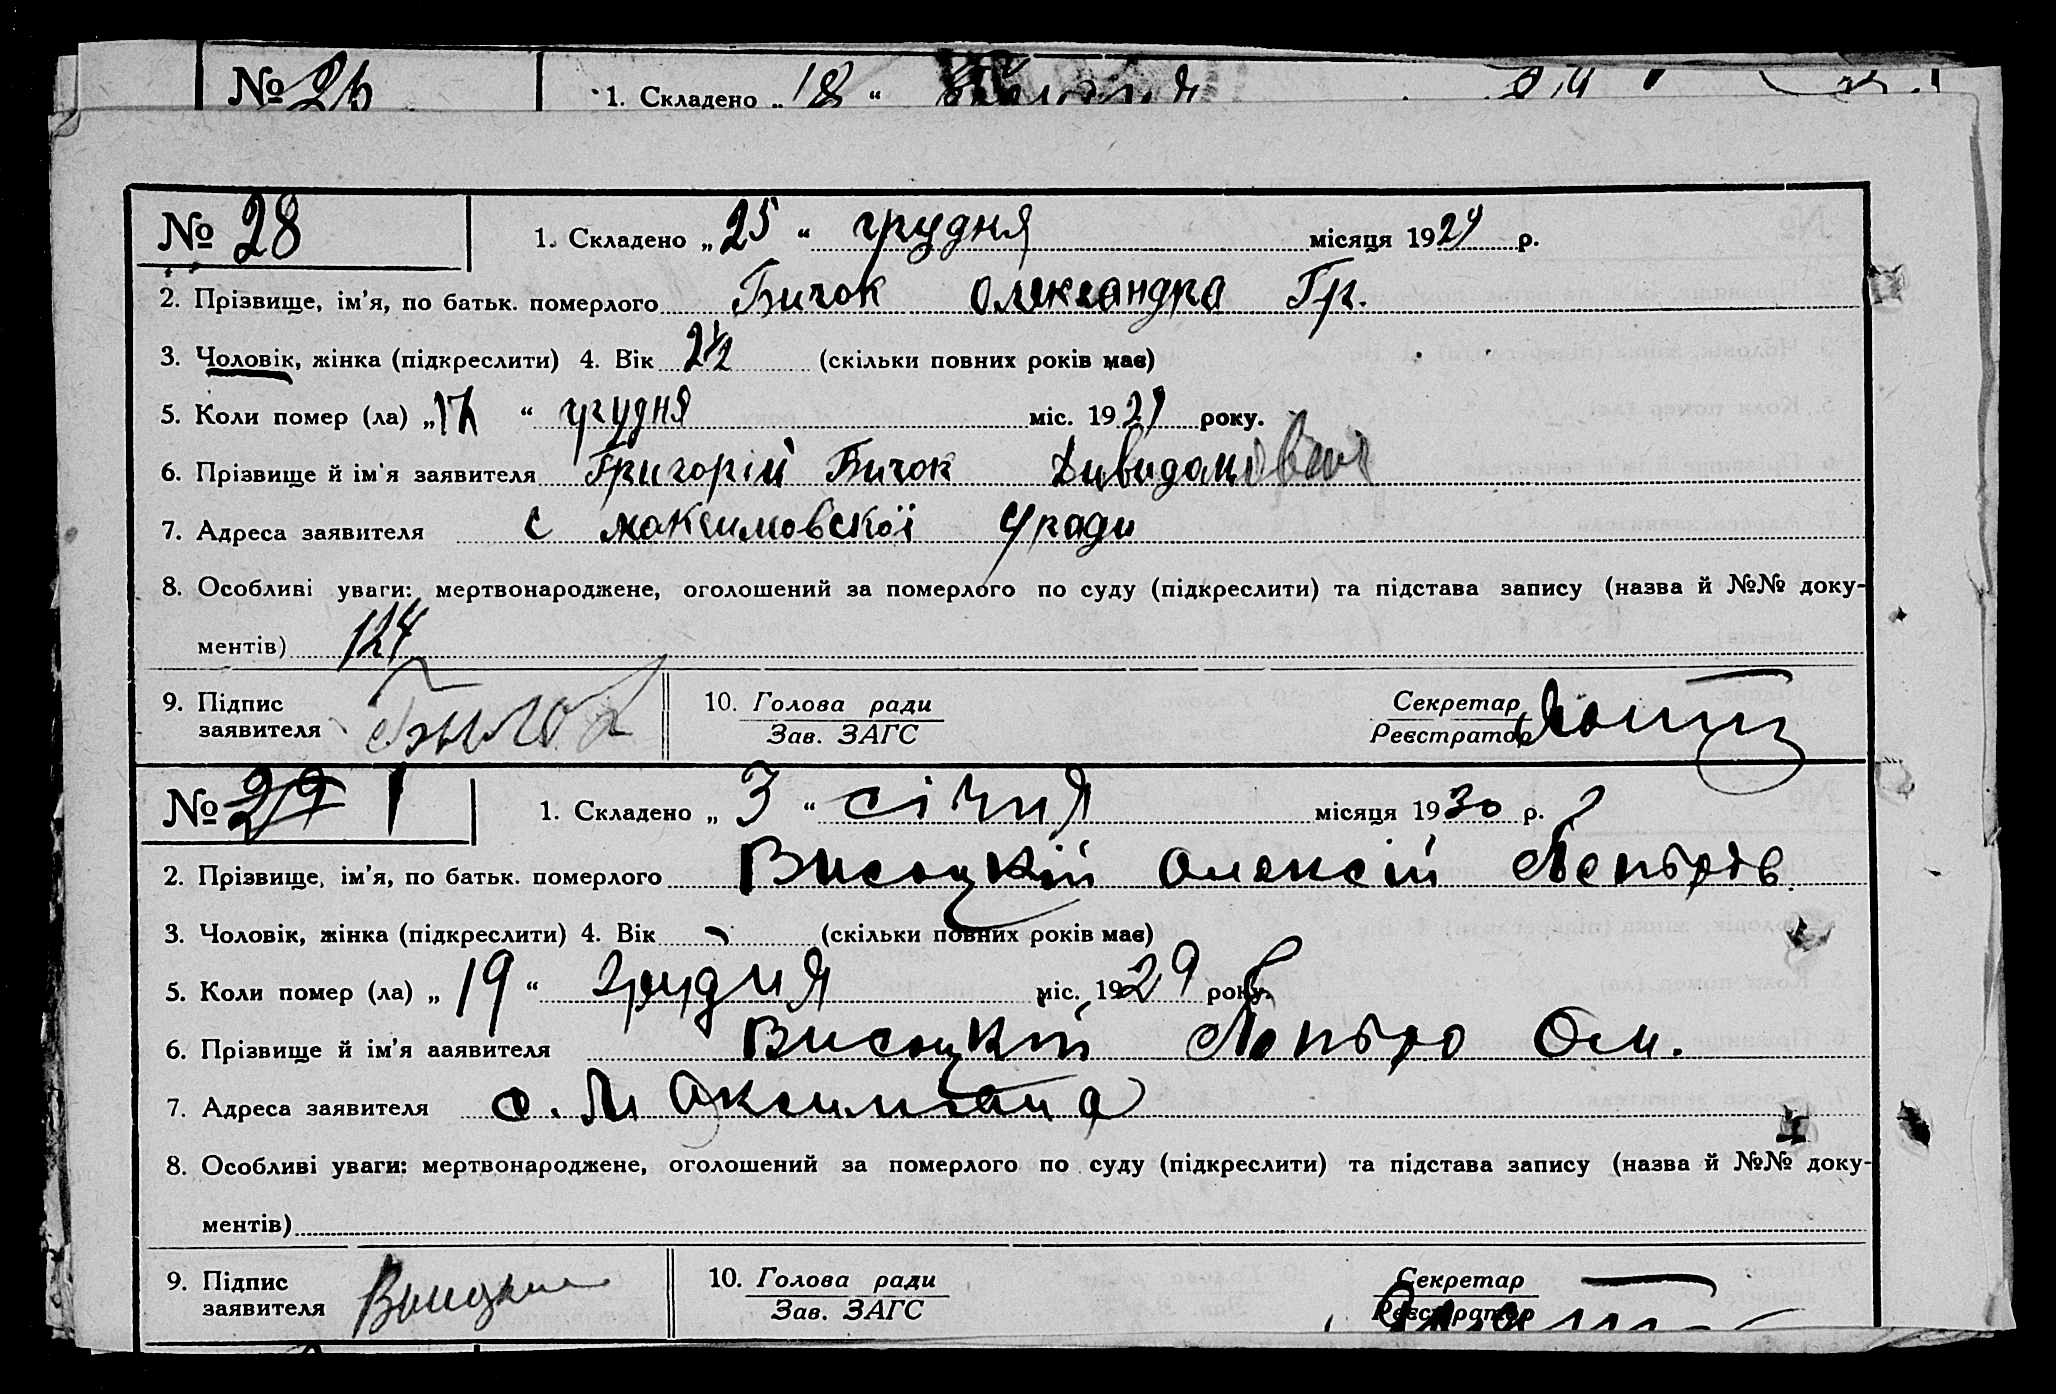 № 26 1. Складено „18“
№ 28 1. Складено „25“ грудня місяця 1929 р.
2. Прізвище, ім'я, по батьк. померлого Бичок Олександра Гр.
3. Чоловік, жінка (підкреслити) 4. Вік 2½ (скільки повних років має)
5. Коли помер (ла) „17“ грудня міс. 1929 року.
6. Прізвище й ім'я заявителя Григорій Бичок
7. Адреса заявителя с Максимовскоï Сради
8. Особливі уваги: мертвонароджене, оголошений за померлого по суду (підкреслити) та підстава запису (назва й №№ доку-
ментів) 124
9. Підпис заявителя 10. Голова ради Зав. ЗАГС Секретар Реєстратор
№ 29 1 1. Складено „3“ січня місяця 1930 р.
2. Прізвище, ім'я, по батьк. померлого Висоцкій Олексій Петров.
3. Чоловік, жінка (підкреслити) 4. Вік (скільки повних років має)
5. Коли помер (ла) „19“ грудня міс. 1929 року.
6. Прізвище й ім'я заявителя Висоцкій Петро Ом.
7. Адреса заявителя с.
8. Особливі уваги: мертвонароджене, оголошений за померлого по суду (підкреслити) та підстава запису (назва й №№ доку-
ментів)
9. Підпис заявителя 10. Голова ради Зав. ЗАГС Секретар Реєстратор